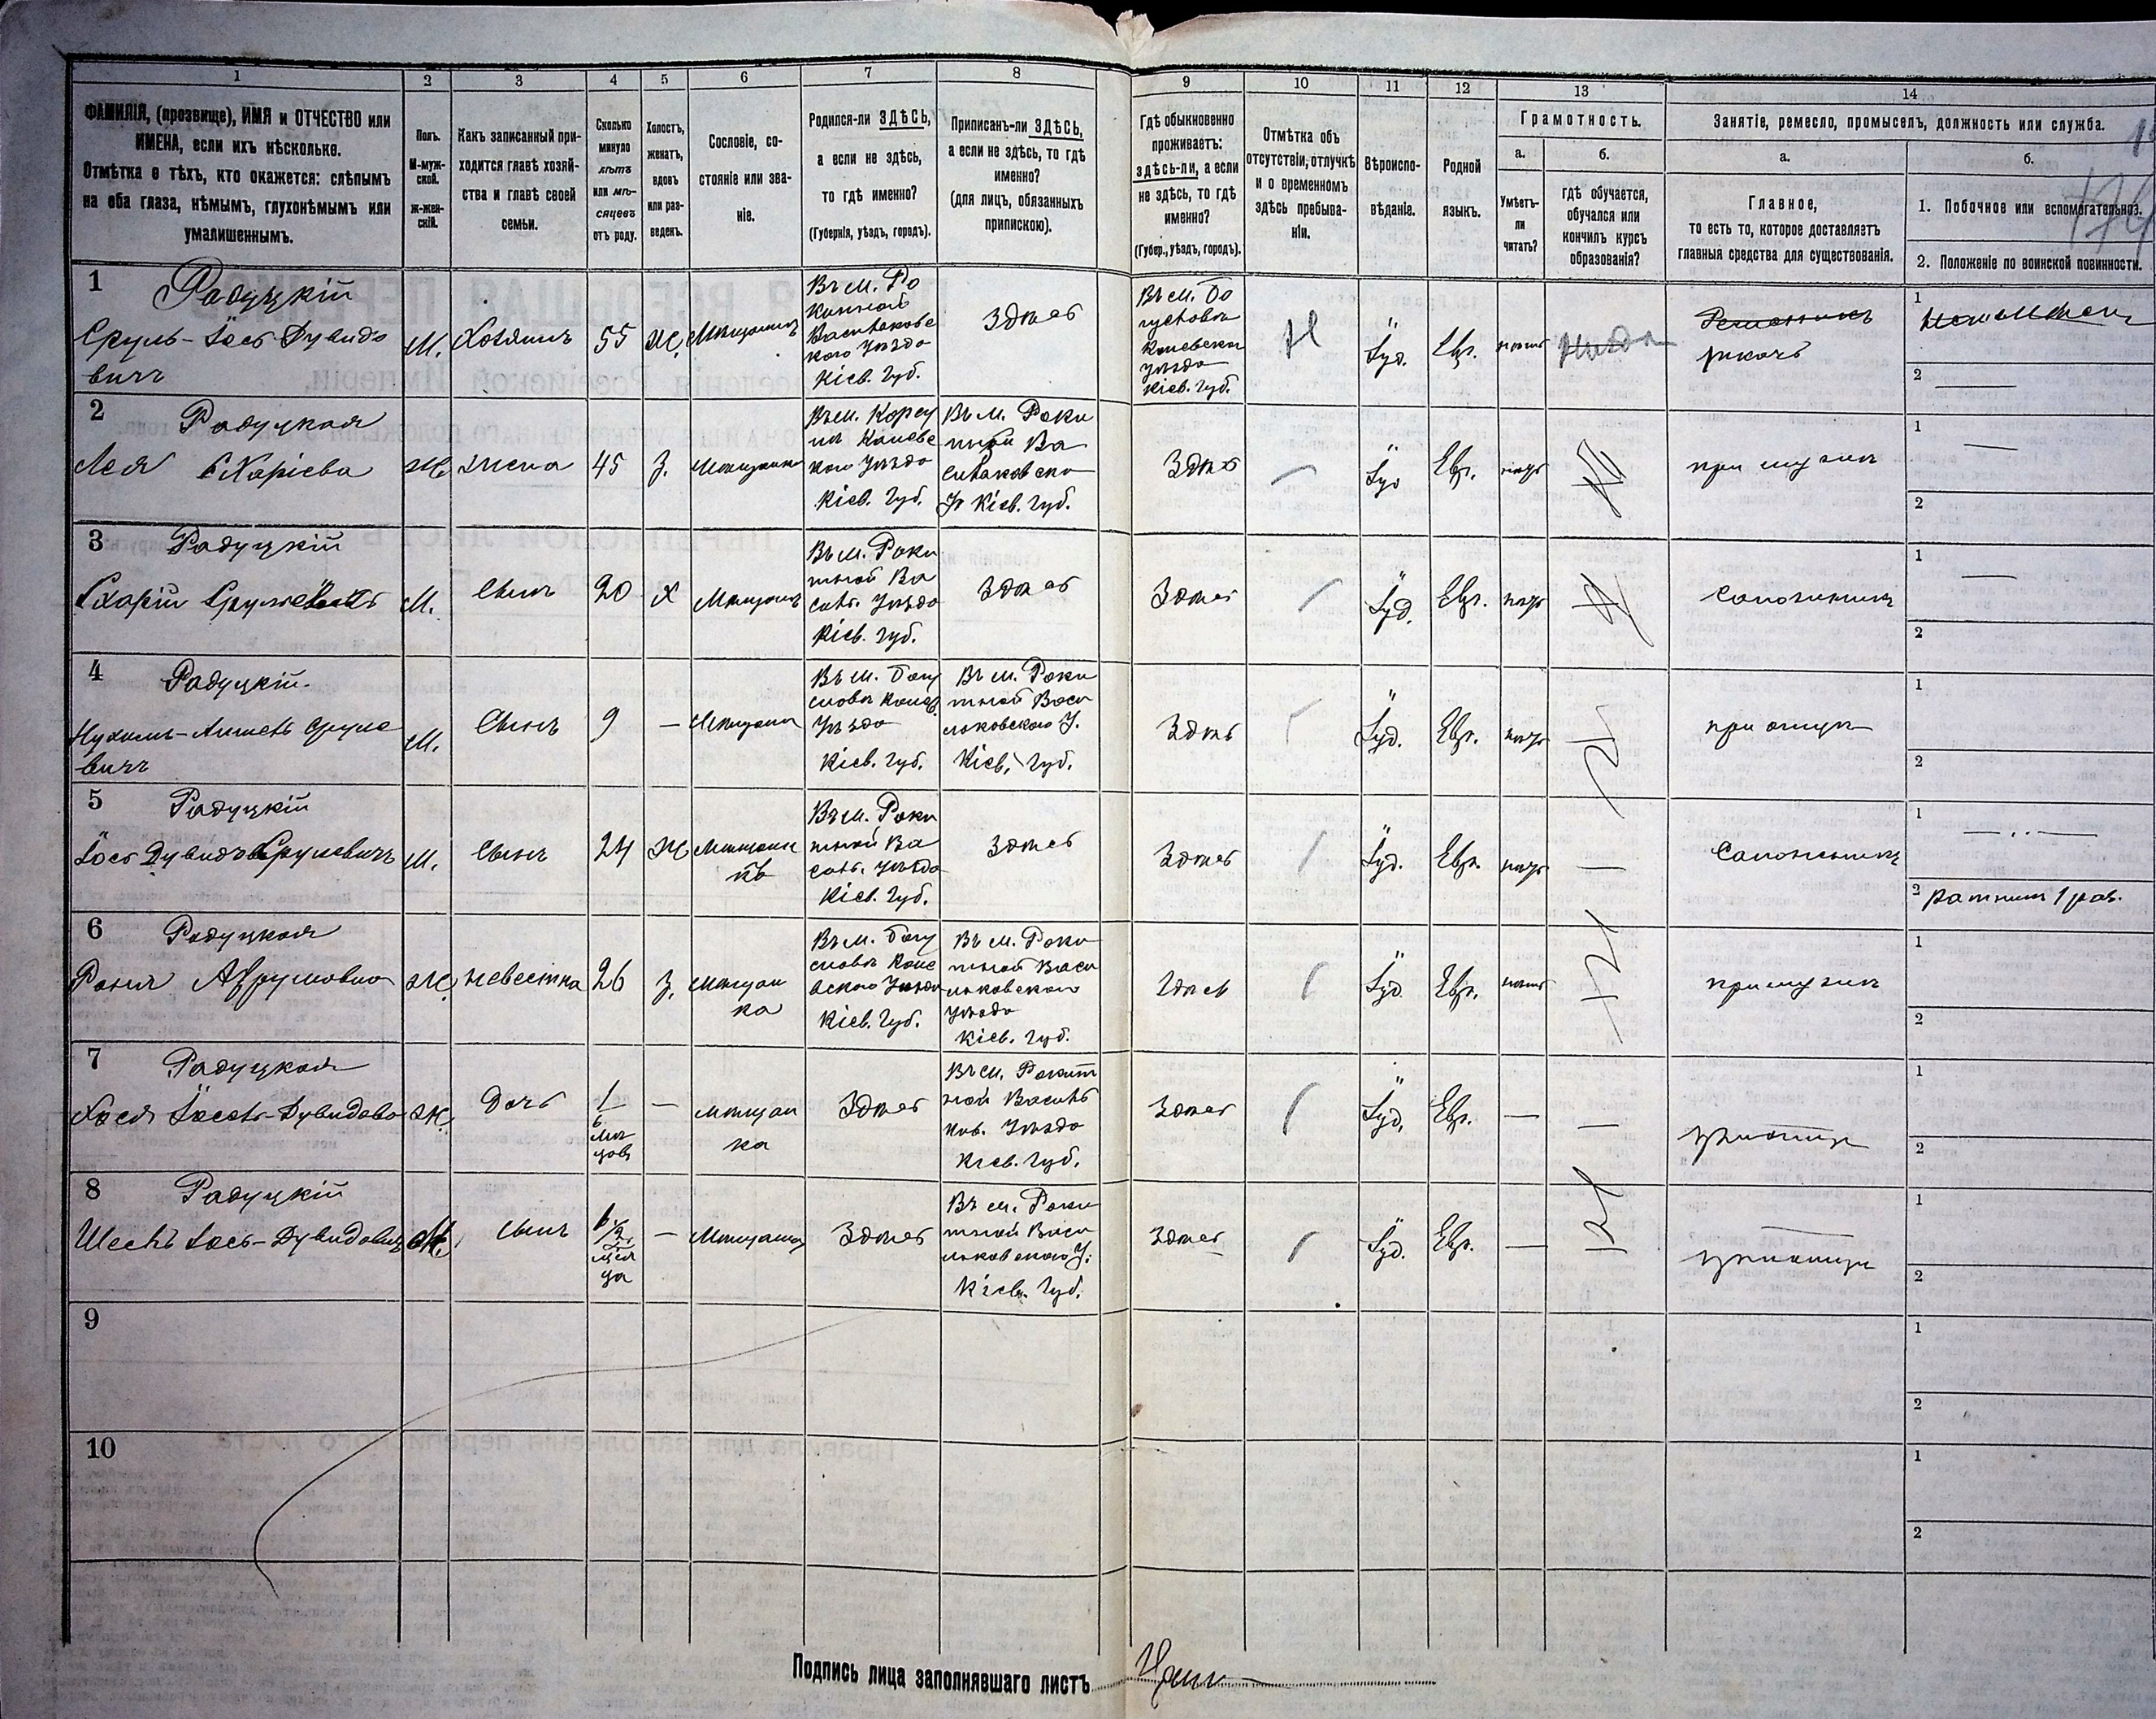 1 2 3 4 5 6 7 8 9 10 11 12 13 14
ФАМИЛІЯ, (прозвище), ИМЯ и ОТЧЕСТВО или
ИМЕНА, если ихъ нѣсколько.
Отмѣтка о тѣхъ, кто окажется: слѣпымъ
на оба глаза, нѣмымъ, глухонѣмымъ или
умалишеннымъ.
Полъ.
М-муж-
ской.
Ж-жен-
скій.
Какъ записанный при-
ходится главѣ хозяй-
ства и главѣ своей
семьи.
Сколько
минуло
лѣтъ
или мѣ-
сяцевъ
отъ роду.
Холостъ,
женатъ,
вдовъ
или раз-
веденъ.
Сословіе, со-
стояніе или зва-
ніе.
Родился-ли ЗДѢСЬ,
а если не здѣсь,
то гдѣ именно?
(Губернія, уѣздъ, городъ).
Приписанъ-ли ЗДѢСЬ,
а если не здѣсь, то гдѣ
именно?
(для лицъ, обязанныхъ
припискою).
Гдѣ обыкновенно
проживаетъ:
здѣсь-ли, а если
не здѣсь, то гдѣ
именно?
(Губер., уѣздъ, городъ).
Отмѣтка объ
отсутствіи, отлучкѣ
и о временномъ
здѣсь пребыва-
ніи.
Вѣроиспо-
вѣданіе.
Родной
языкъ.
Грамотность.
а.
Умѣетъ-
ли
читать?
б.
гдѣ обучается,
обучался или
кончилъ курсъ
образованія?
Занятіе, ремесло, промыселъ, должность или служба.
а.
Главное,
то есть то, которое доставляетъ
главныя средства для существованія.
б.
1. Побочное или вспомогательное.
2. Положеніе по воинской повинности.
1
Радуцкій
Сруль-Іось Дувидо
вичъ
М.
Хозяинъ
55
Ж.
Мѣщанинъ
Въ м. Ро
китной
Васильковс
кого Уѣзда
Кіев. Губ.
Здѣсь
Въ м. Бо
гуславѣ
Каневска
Уѣзда
Кіев. Губ.
Н
Іуд.
Евр.
1
2
2
Радуцкая
Лея Схаріева
Ж
жена
45
З.
Мѣщанка
Въ м. Корсу
нѣ Каневс
кого Уѣзда
Кіев. Губ.
Въ м. Роки
тной Ва
сильковско
У. Кіев. Губ.
Здѣсь
Іуд
Евр.
при мужѣ
1
2
3
Радуцкій
Схарій Срулевичъ
М.
Сынъ
20
Х
Мѣщанинъ
Въ м. Роки
тной Ва
силь. Уѣзда
Кіев. Губ.
Здѣсь
Здѣсь
Іуд.
Евр.
Сапожникъ
1
2
4
Радуцкій
М.
Сынъ
9
—
Мѣщанинъ
Въ м. Богу
славѣ Канев.
Уѣзда
Кіев. Губ.
Въ м. Роки
тной Васи
льковского У.
Кіев. Губ.
Здѣсь
Іуд.
Евр.
при отцѣ
1
2
5
Радуцкій
Іось Дувидъ Срулевичъ
М.
Сынъ
24
Ж
Мѣщани
нъ
Въ м. Роки
тной Ва
силь. Уѣзда
Кіев. Губ.
Здѣсь
Здѣсь
Іуд.
Евр.
—
Сапожникъ
1
2 Ратникъ 1 раз.
6
Радуцкая
Ж.
невестка
26
З.
Мѣщан
ка
Въ м. Богу
славѣ Кане
вского Уѣзда
Кіев. Губ.
Въ м. Роки
тной Васи
льковского
Уѣзда
Кіев. Губ.
Здѣсь
Іуд.
Евр.
при мужѣ
1
2
7
Радуцкая
Хася Іосевъ-Дувидова
Ж.
Дочь
1
—
мѣщан
ка
Здѣсь
Въ м. Рокит
ной Василь
ков. Уѣзда
Кіев. Губ.
Здѣсь
Іуд.
Евр.
—
—
1
2
8
Радуцкій
М.
сынъ
—
Мѣщанинъ
Здѣсь
Въ м. Роки
тной Васи
льковского У.
Кіев. Губ.
Здѣсь
Іуд.
Евр.
—
1
2
9
1
2
10
1
2
Подпись лица заполнявшаго листъ